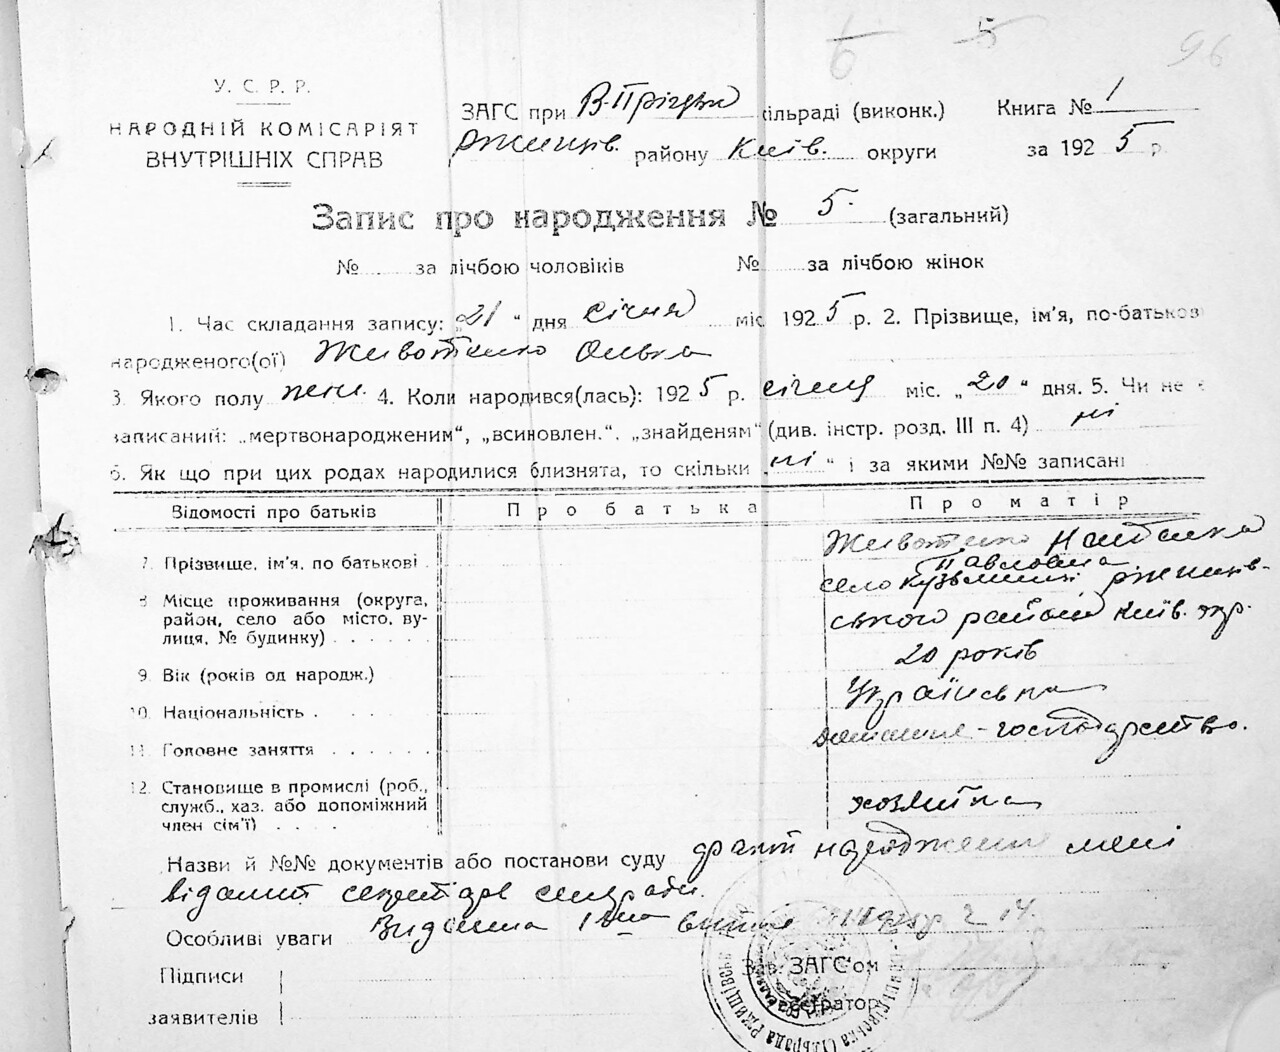 6 5 96
У. С. Р. Р.
НАРОДНІЙ КОМІСАРІЯТ
ВНУТРІШНІХ СПРАВ
ЗАГС при В-Пріцьки сільраді (виконк.) Книга № 1
Ржищів. району Київ. округи за 1925 р.
Запис про народження № 5. (загальний)
№ за лічбою чоловіків № за лічбою жінок
1. Час складання запису: „21“ дня січня міс. 1925 р. 2. Прізвище, ім'я, по-батькові
народженого(ої) Животенко Олька
3. Якого полу жін. 4. Коли народився(лась): 1925 р. січня міс. „20“ дня. 5. Чи не є
записаний: „мертвонародженим“, „всиновлен.“, „знайденям“ (див. інстр. розд. III п. 4) ні
6. Як що при цих родах народилися близнята, то скільки „ні“ і за якими №№ записані
Відомості про батьків Про батька Про матір
7. Прізвище, ім'я, по батькові Животенко Наталка
Павловна
8. Місце проживання (округа, село Кузьминці Ржищів-
район, село або місто, ву- ського району Київ. окр.
лиця, № будинку)
9. Вік (років од народж.) 20 років
10. Національність Українська
11. Головне заняття домашнє-господарство.
12. Становище в промислі (роб.,
служб., хаз. або допоміжний хозяйка
член сім'ї)
Назви й №№ документів або постанови суду факт народження мені
відомий секретарь сільради.
Особливі уваги Видана
Підписи Зав. ЗАГС'ом
заявителів Реєстратор